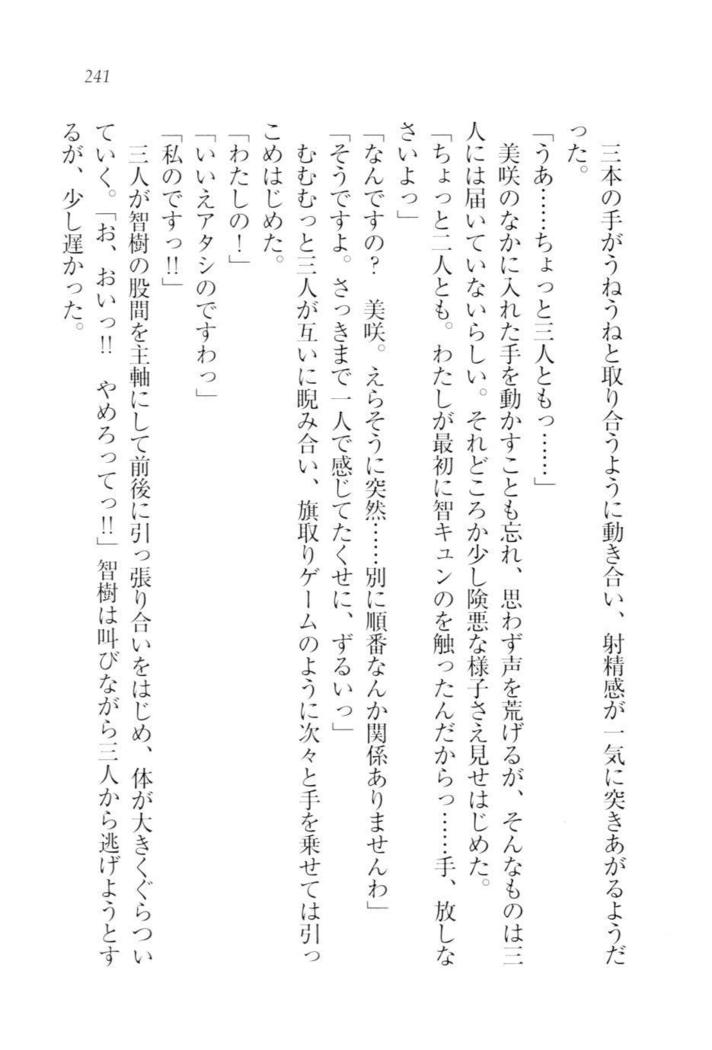 241
三本の手がうねうねと取り合うように動き合い、射精感が一気に突きあがるようだ
った。
「うあ……ちょっと三人ともっ……」
美咲のなかに入れた手を動かすことも忘れ、思わず声を荒げるが、そんなものは三
人には届いていないらしい。それどころか少し険悪な様子さえ見せはじめた。
「ちょっと二人とも。わたしが最初に智キュンのを触ったんだからっ……手、放しな
さいよっ」
「なんですの?　美咲。えらそうに突然……別に順番なんか関係ありませんわ」
「そうですよ。さっきまで一人で感じてたくせに、ずるいっ」
むむむっと三人が互いに睨み合い、旗取りゲームのように次々と手を乗せては引っ
こめはじめた。
「わたしの!」
「いいえアタシのですわっ」
「私のですっ!!」
三人が智樹の股間を主軸にして前後に引っ張り合いをはじめ、体が大きくぐらつい
ていく。「お、おいっ!!　やめろってっ!!」智樹は叫びながら三人から逃げようとす
るが、少し遅かった。